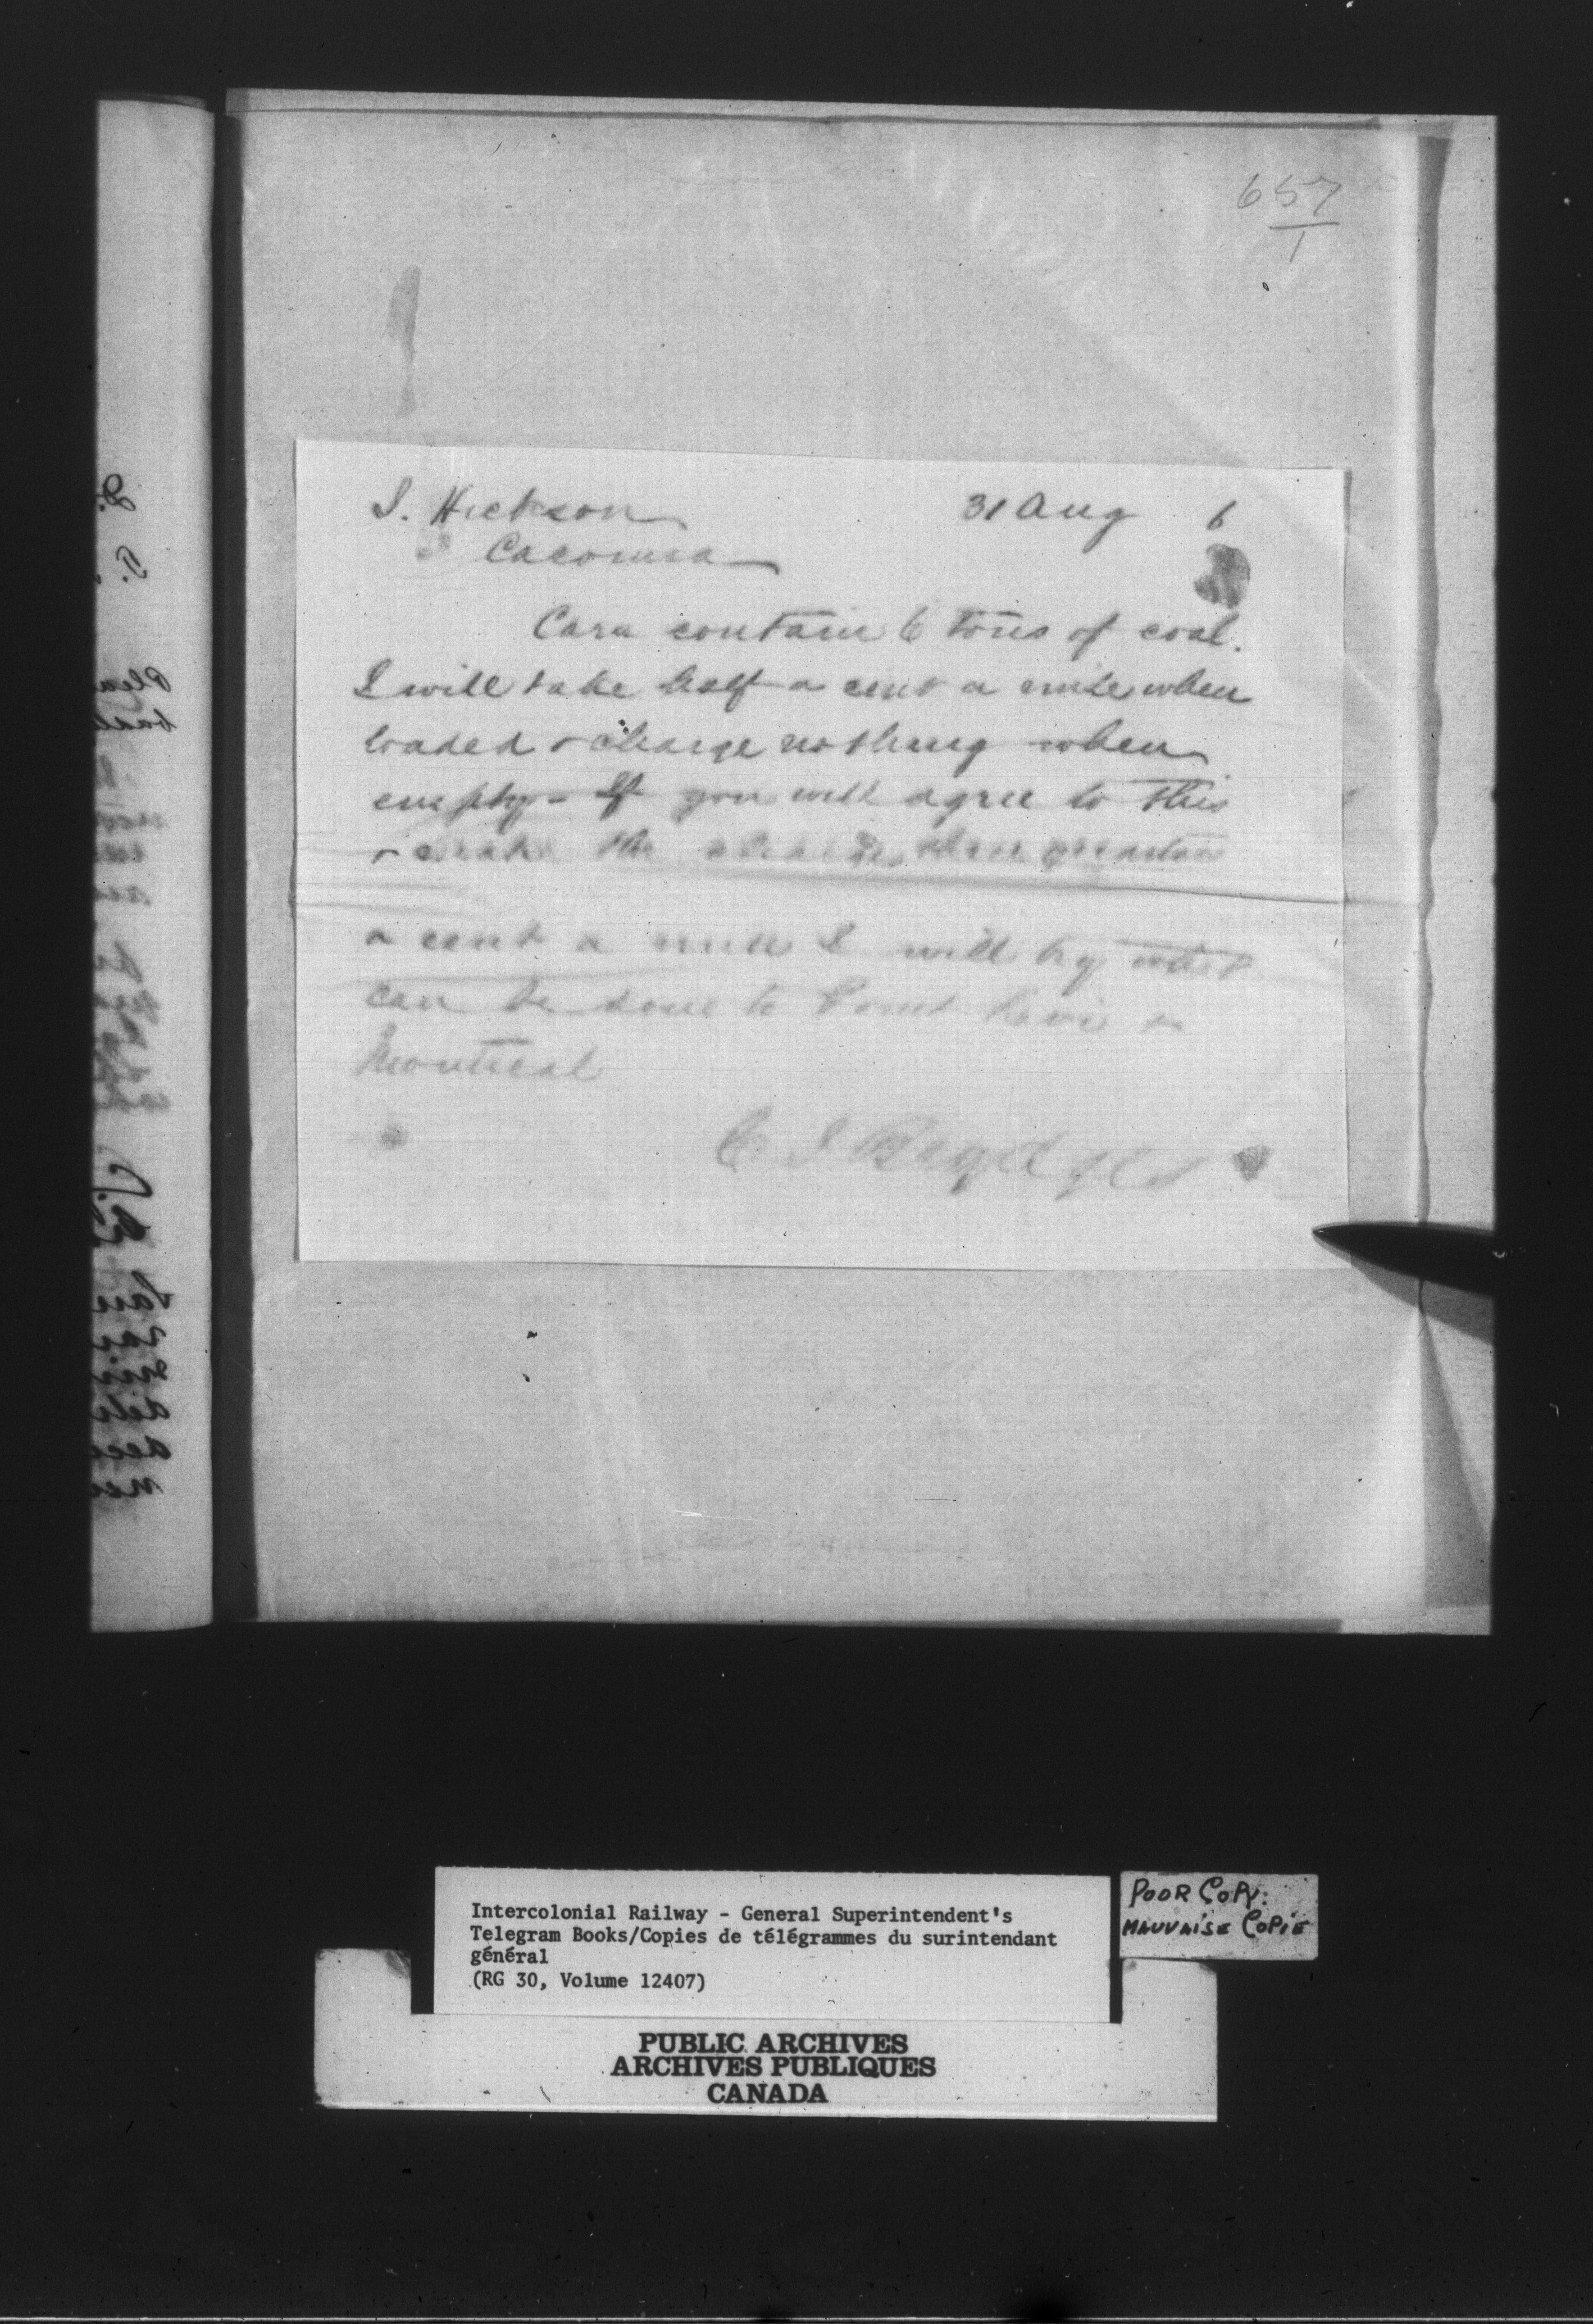 657
1
J. Hickson 31 Aug 6
Cacouna
Cars contain 6 tons of coal.
I will take half a cent a mile when
loaded & charge nothing when
empty - If you will agree to this
& make the
a cent a mile I will try what
can be done to Point Levi or
Montreal
C J Brydges
Intercolonial Railway - General Superintendent's
Telegram Books/Copies de télégrammes du surintendant
général
(RG 30, Volume 12407)
POOR COPY.
MAUVAISE COPIE
PUBLIC ARCHIVES
ARCHIVES PUBLIQUES
CANADA